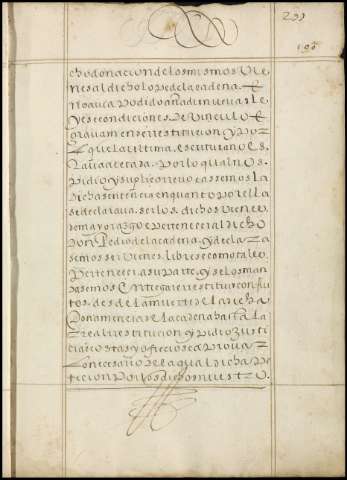 293
195
cho donacion delos mismos Vie
nes al dicho lope de la cadena. E
no auia podido añadir nueuas le
yes e condiciones de Vinculo E
grauamen se rrestitucion, y por
que la vltima, escritura no es
taua acetada. Por lo qual nos
pidio y suplico rreuocasemos la
dicha sentencia en quanto por ella
se declaraua, ser los dichos vienes
de mayorazgo e pertenecer al dicho
don Pedro de la cadena, y declara
semos ser vienes libres e como tales
Pertenecer a su parte, y se los man
dasemos Entregar e rrestituir con fru
tos, desde la muerte de la dicha
Doña mencia de la cadena hasta la
rreal rrestitucion, y pidio Justi
cia e costas, y ofreciose a prouar
lo necesario. De la qual dicha Pe
ticion Por los dichos nuestro